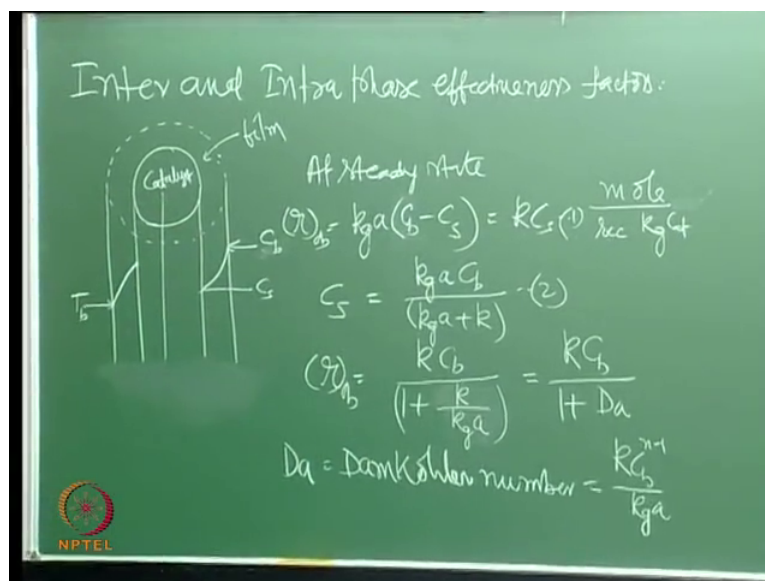 Inter and Intra phase effectiveness factor.
film
Catalyst
At steady state
(r)b = kga(Cb - Cs) = kCs (1) mole / sec kg Cat
Cb
Cs
Tb
Cs = kga Cb / (kga + k) -(2)
(r)b = kCb / (1 + k / kga) = kCb / 1 + Da
Da = Damköhler number = kCb^n-1 / kga
NPTEL